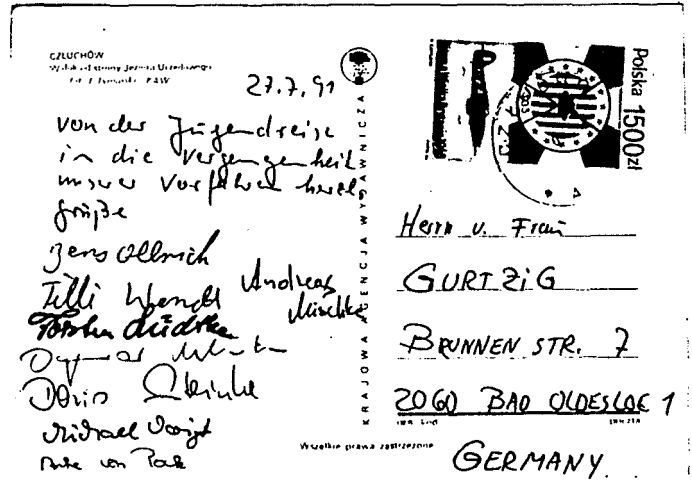 CZŁUCHÓW
27.7.91
von der Jugendreise
in die Vergangenheit
unserer Vorfahren herzl.
Grüße
Jens Ollrich
Tilli Wendt
Andreas
Mischke
Torsten Lüdtke
Dagmar
Doris Steinke
Michael Voigt
von
KRAJOWA AGENCJA WYDAWNICZA
Polska 1500zł
Herrn u. Frau
GURTZIG
BRUNNEN STR. 7
2060 BAD OLDESLOE 1
GERMANY
Wszelkie prawa zastrzeżone